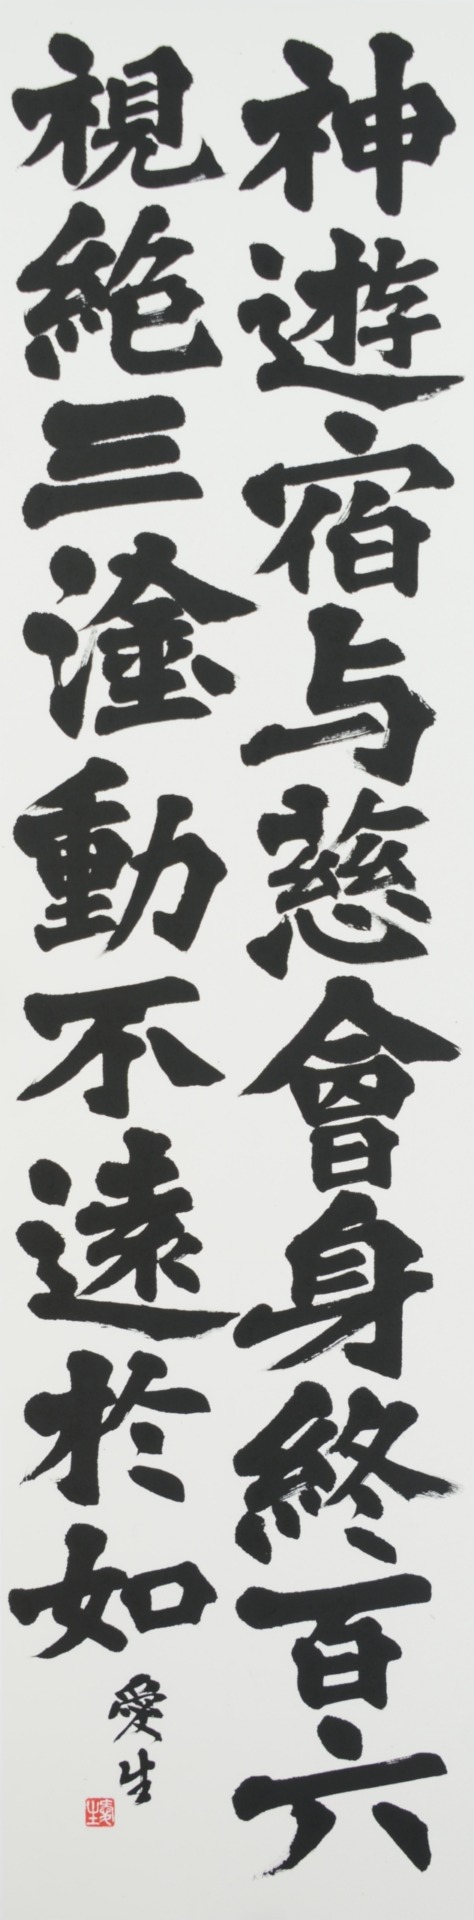 神遊宿与慈會身終百六
視絶三塗動不遠於如
愛生
愛生